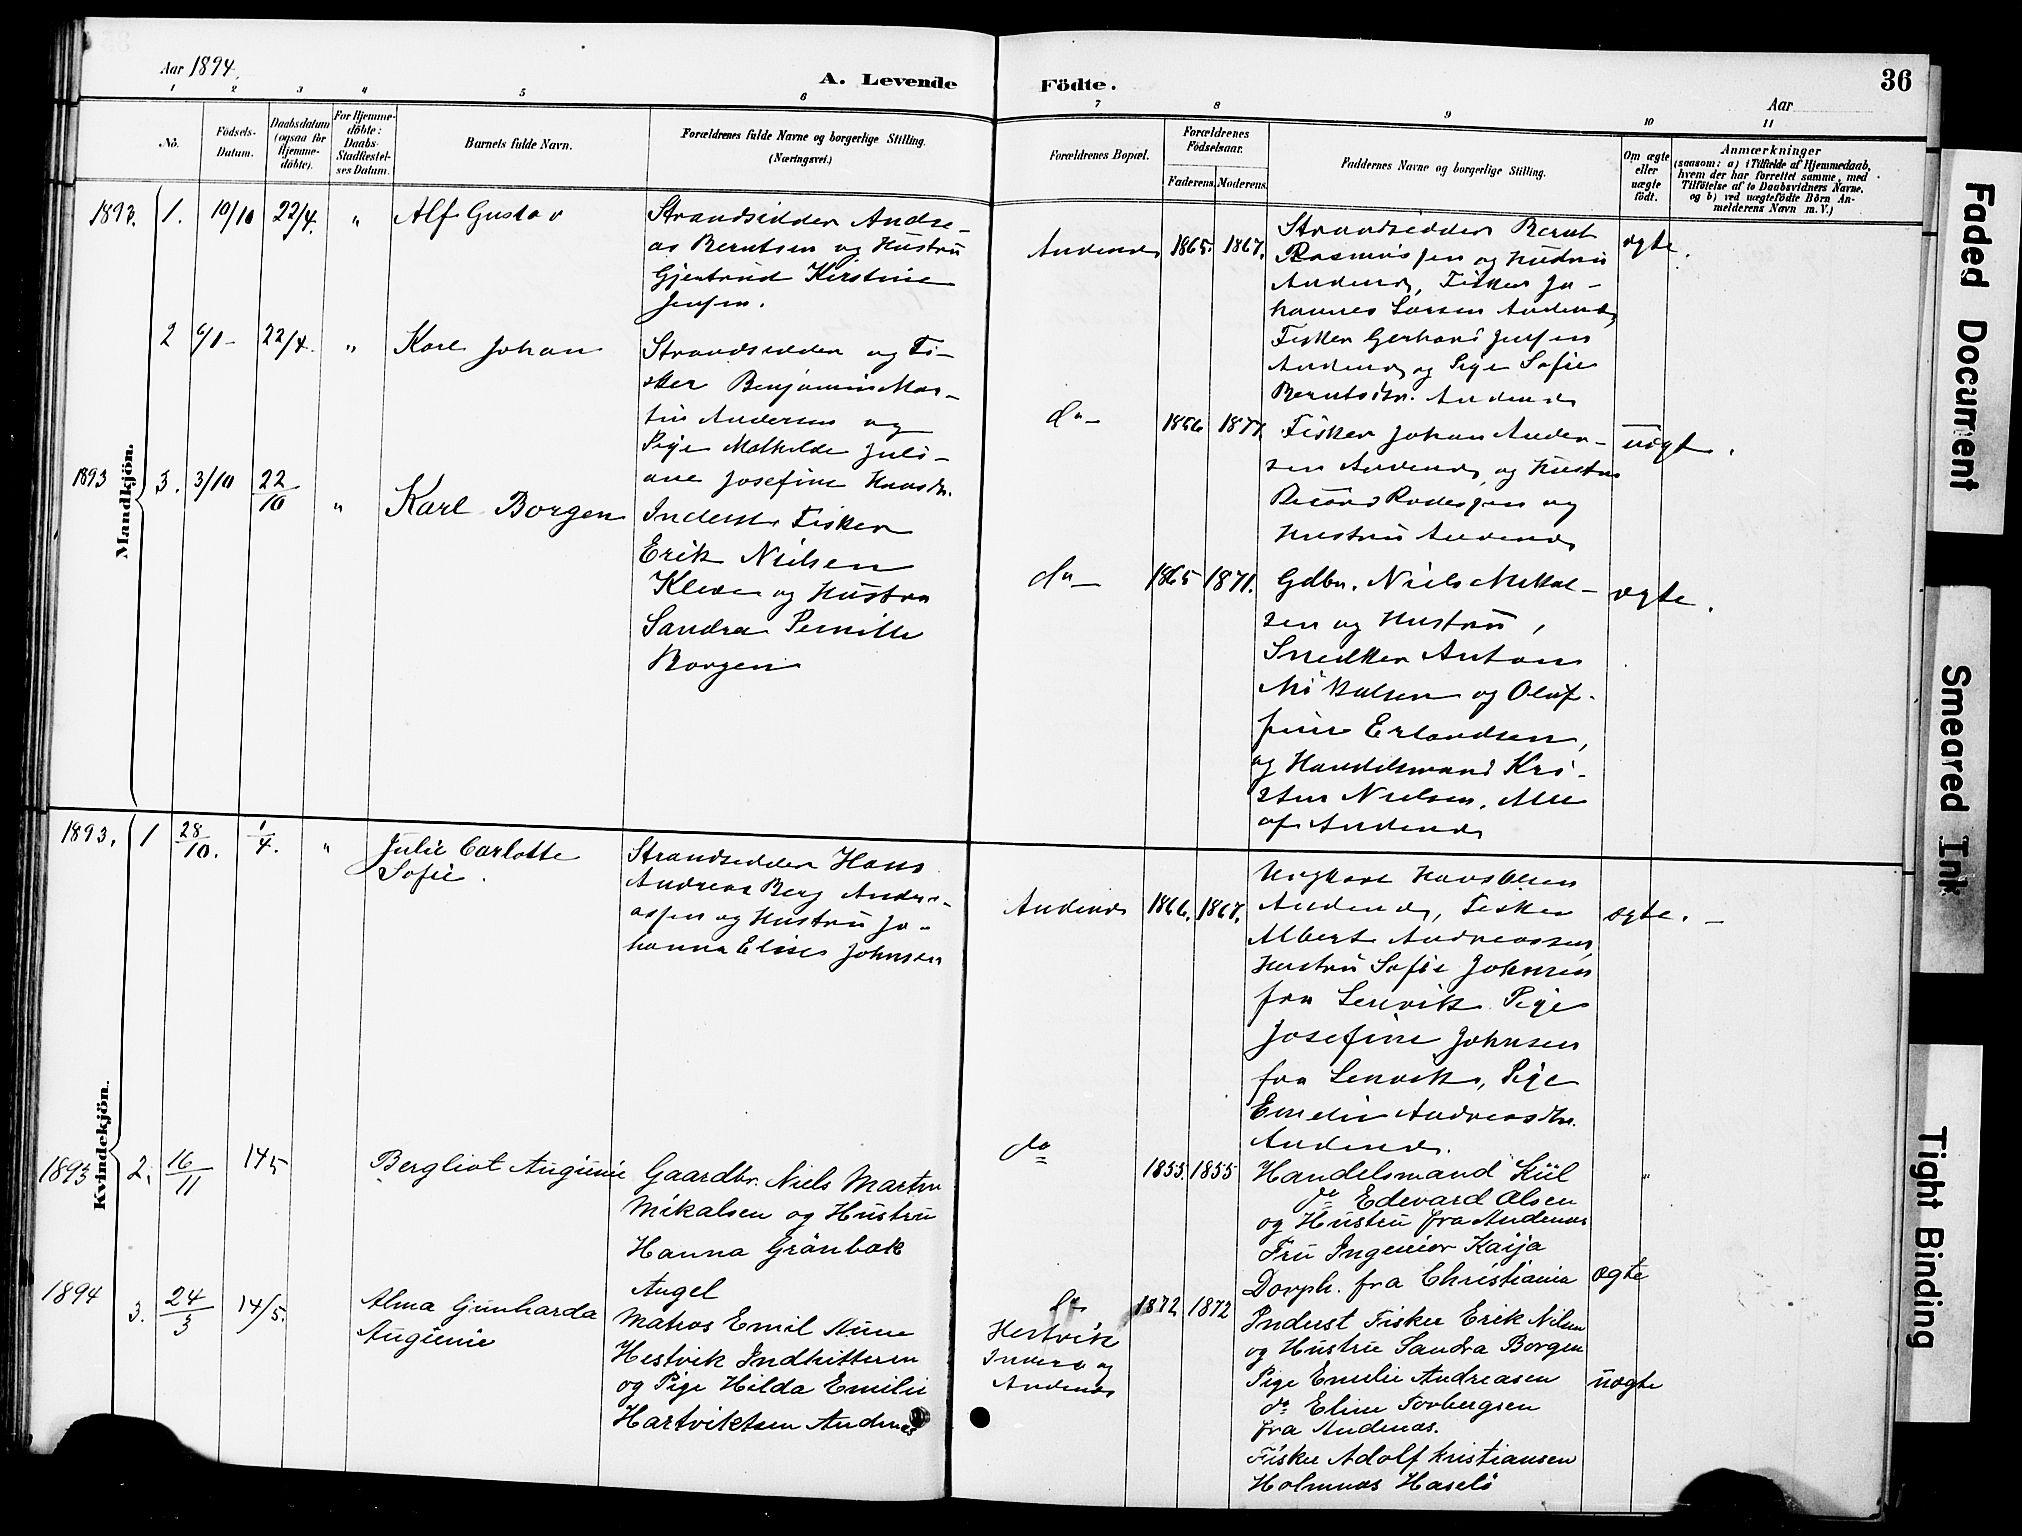 Aar 1894.
A. Levende
Födte.
Aar
36
1 2 3 4 5 6 7 8 9 10 11
No.
Födsels-
Datum.
Daabsdatum
(ogsaa for
Hjemme-
döbte).
For Hjemme-
döbte:
Daabs-
Stadfæstel-
ses Datum.
Barnets fulde Navn.
Forældrenes fulde Navne og borgerlige Stilling.
(Næringsvei.)
Forældrenes Bopæl.
Forældrenes
Födselsaar.
Faderens. Moderens.
Faddernes Navne og borgerlige Stilling.
Om ægte
eller
uægte
födt.
Anmærkninger
(saasom: a) i Tilfælde af Hjemmedaab,
hvem der har forrettet samme, med
Tilföielse af to Daabsvidners Navne.
og b) ved uægtefödte Börn An-
melderens Navn m. V.)
Mandkjön.
1893. 1. 10/10 22/4. " Alf Gustav
Strandsidder Andre-
as Berntsen og Hustru
Gjertrud Kirstine
Jensen.
Andenæs 1865. 1867.
Strandsidder Bernt
Rasmussen og Hustru
Andenæs, Fisker Jo-
hannes Larsen Andenæs,
Fisker Gerhard Jensen
Andenæs og Pige Sofie
Berntsdtr. Andenæs
ægte.
2 22/4. " Karl Johan
Strandsidder og Fi-
sker Benjamin Mar-
tin Andersen og
Pige Mathilde Juli-
ane Josefine Hansdr.
do 1866 1877.
Fisker Johan Ander-
sen Andenæs og Hustru
og
Hustru Andenæs
uægte.
1893 3. 3/10 22/10 " Karl Borgen
Inderst Fisker
Erik Nielsen
Kleven og Hustru
Sandra Pernille
Borgen
do 1865 1871.
Gdbr. Niels Mikal-
sen og Hustru,
Snedker Anton
Mikalsen og Oluf-
fine Erlandsen,
og Handelsmand Kri-
sten Nielsen. Alle
af Andenæs
ægte.
Kvindekjön.
1893. 1 28/10. 1/4. " Julie Carlotte
Sofie.
Strandsidder Hans
Andreas Berg Andre-
assen og Hustru Jo-
hanna Elise Johnsen
Andenæs 1866. 1867.
Ungkarl Hans Olsen
Andenæs, Fisker
Albert Andreassen,
Hustru Sofie Johnsen
fra Lenvik Pige
Josefine Johnsen
fra Lenvik, Pige
Emelie Andreasdtr.
Andenæs.
ægte. -
1893 2. 16/11 14/5 Bergliot Augunie
Gaardbr. Niels Martin
Mikalsen og Hustru
Hanna Grönbæk
Angel
do 1855. 1855
Handelsmand Kiil
do Edevard Olsen
og Hustru fra Andenæs
Fru Ingeniör Kaija
Dorph. fra Christiania
"
ægte
1894 3. 24/3 14/5. Alma Gunharda
Augunie
Matros Emil Aune
Hestvik Indhitteren
og Pige Hilda Emilie
Hartviktsen Andenæs
do
Hestvik
og
Andenæs
1872 1872
Inderst Fisker Erik Nilsen
og Hustru Sandra Borgen
Pige Emelie Andreasen
do Eline Torbergsen
fra Andenæs.
Fisker Adolf Kristiansen
Holmnæs Haselö
uægte
Faded Document
Smeared Ink
Tight Binding